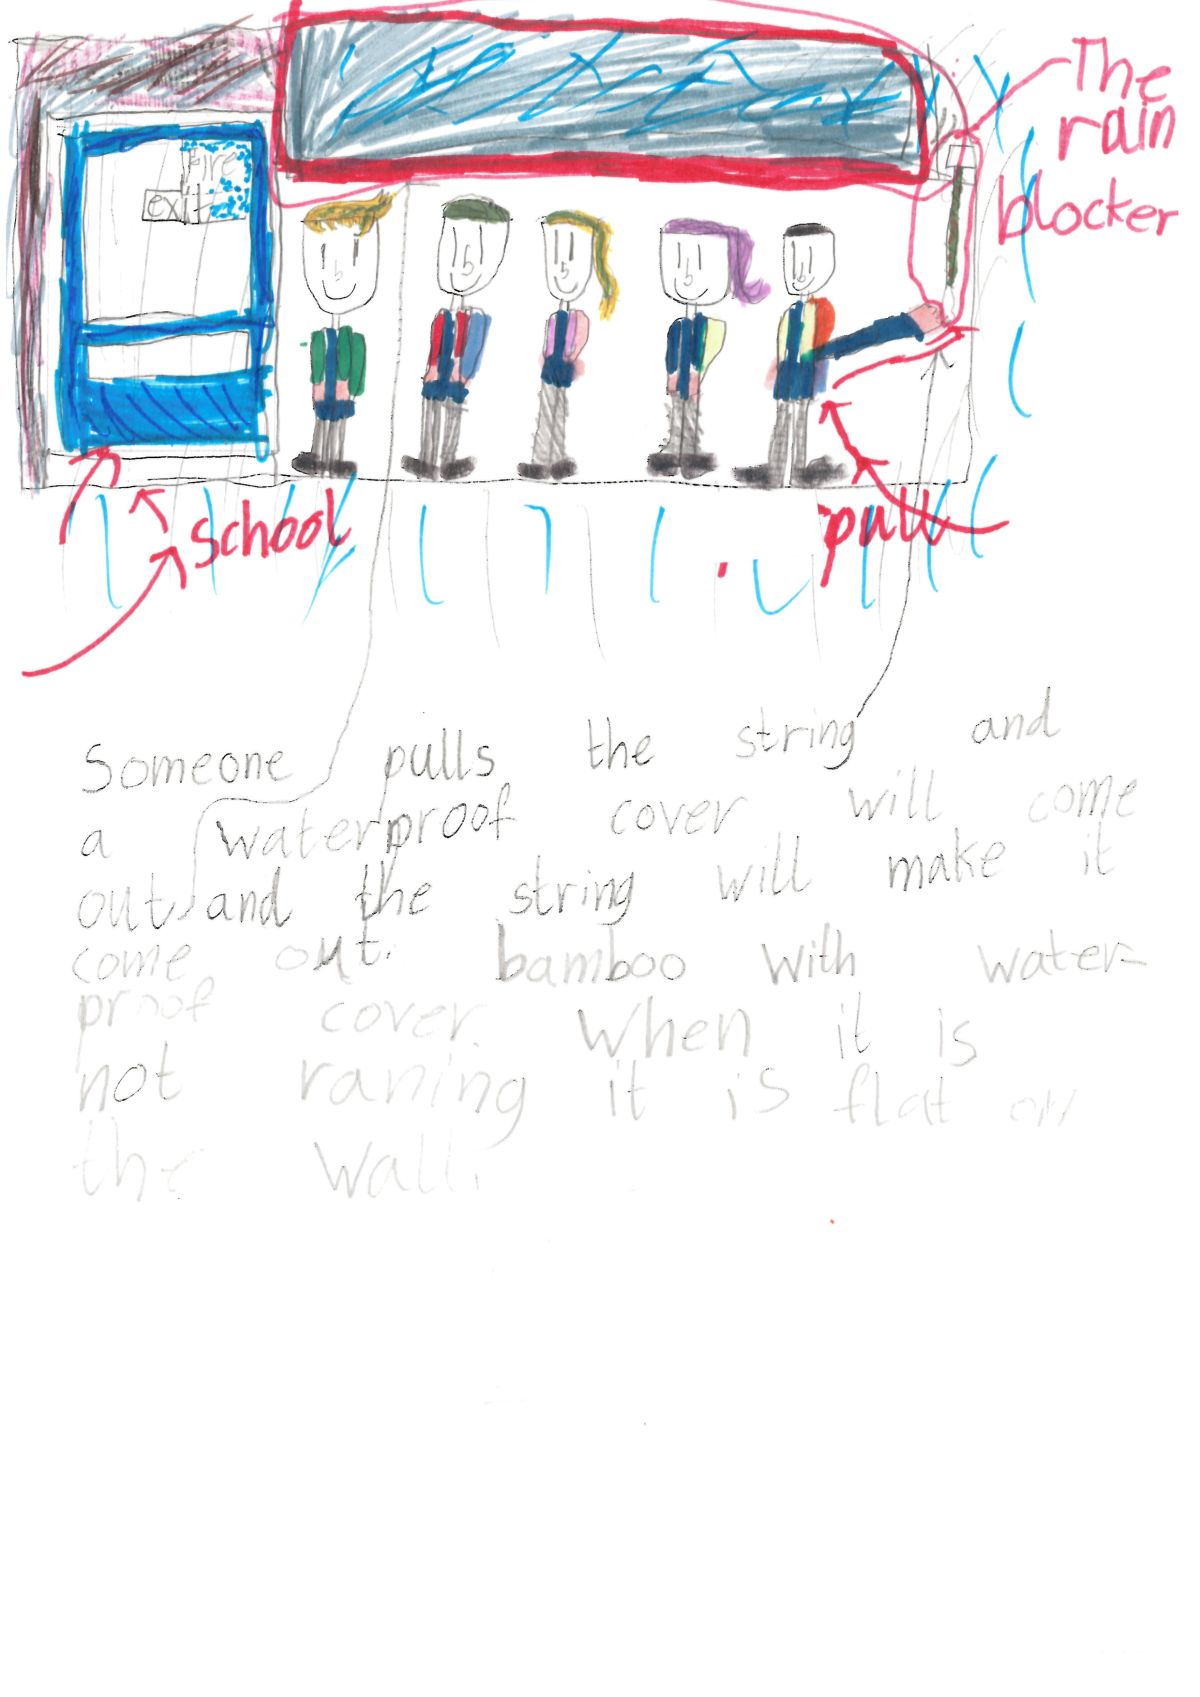 The
rain
blocker
Fire
exit
school
pull
Someone pulls the string and
a waterproof cover will come
out and the string will make it
come out. bamboo with water-
proof cover. When it is
not raning it is flat on
the wall.